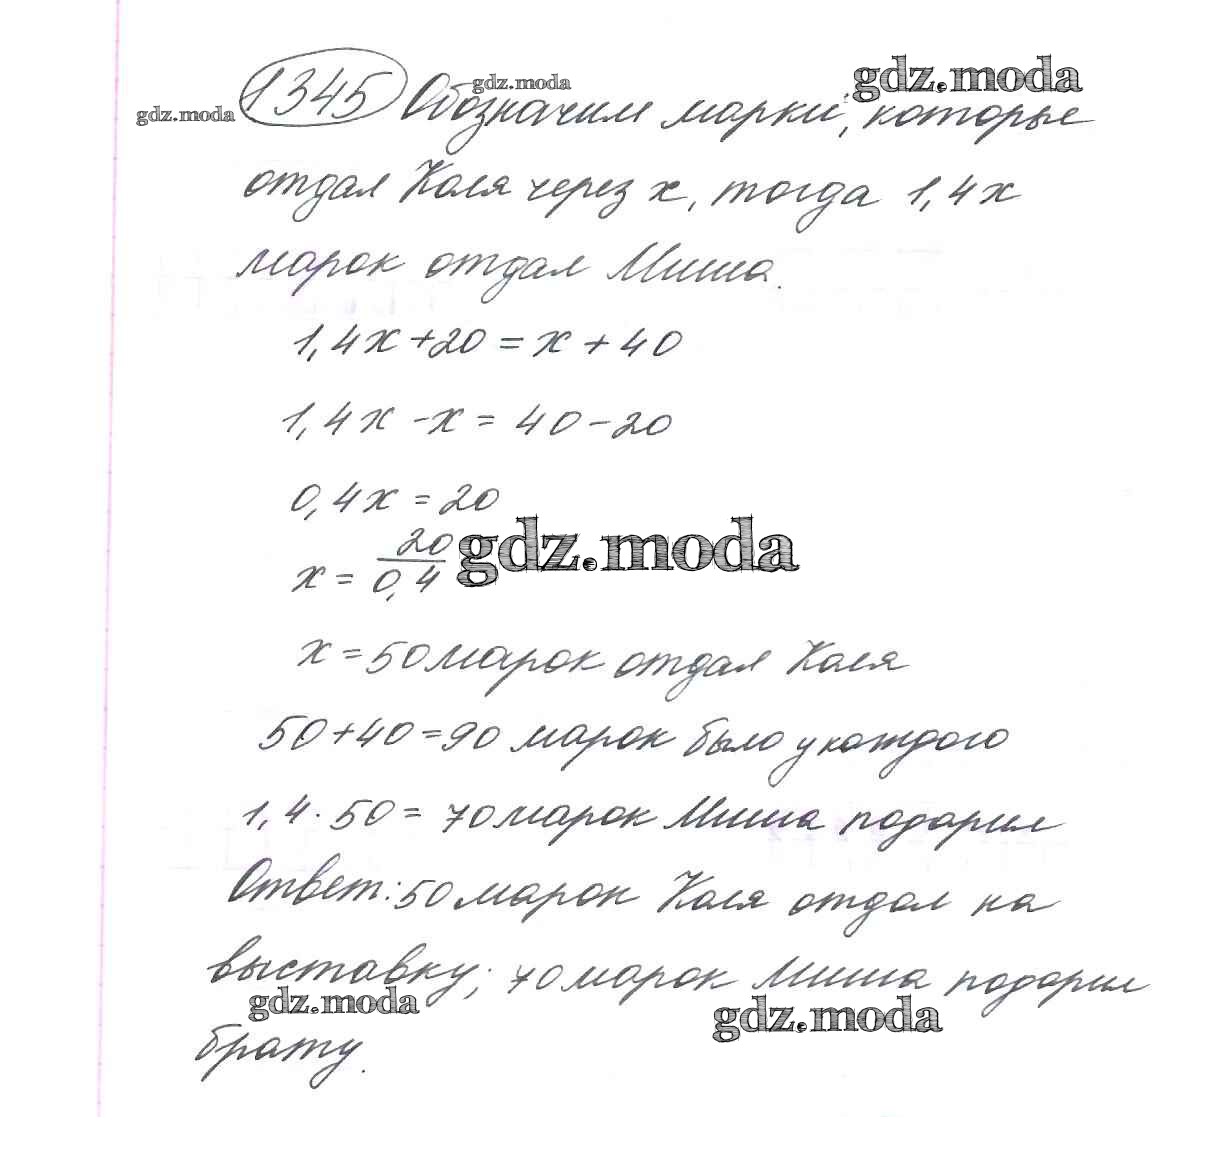 1345 Обозначим марки, которые
отдал Коля через x, тогда 1,4x
марок отдал Миша.
1,4x+20=x+40
1,4x-x=40-20
0,4x=20
x=20/0,4
x=50 марок отдал Коля
50+40=90 марок было у каждого
1,4·50=70 марок Миша подарил
Ответ: 50 марок Коля отдал на
выставку; 70 марок Миша подарил
брату.
gdz.moda
gdz.moda
gdz.moda
gdz.moda
gdz.moda
gdz.moda